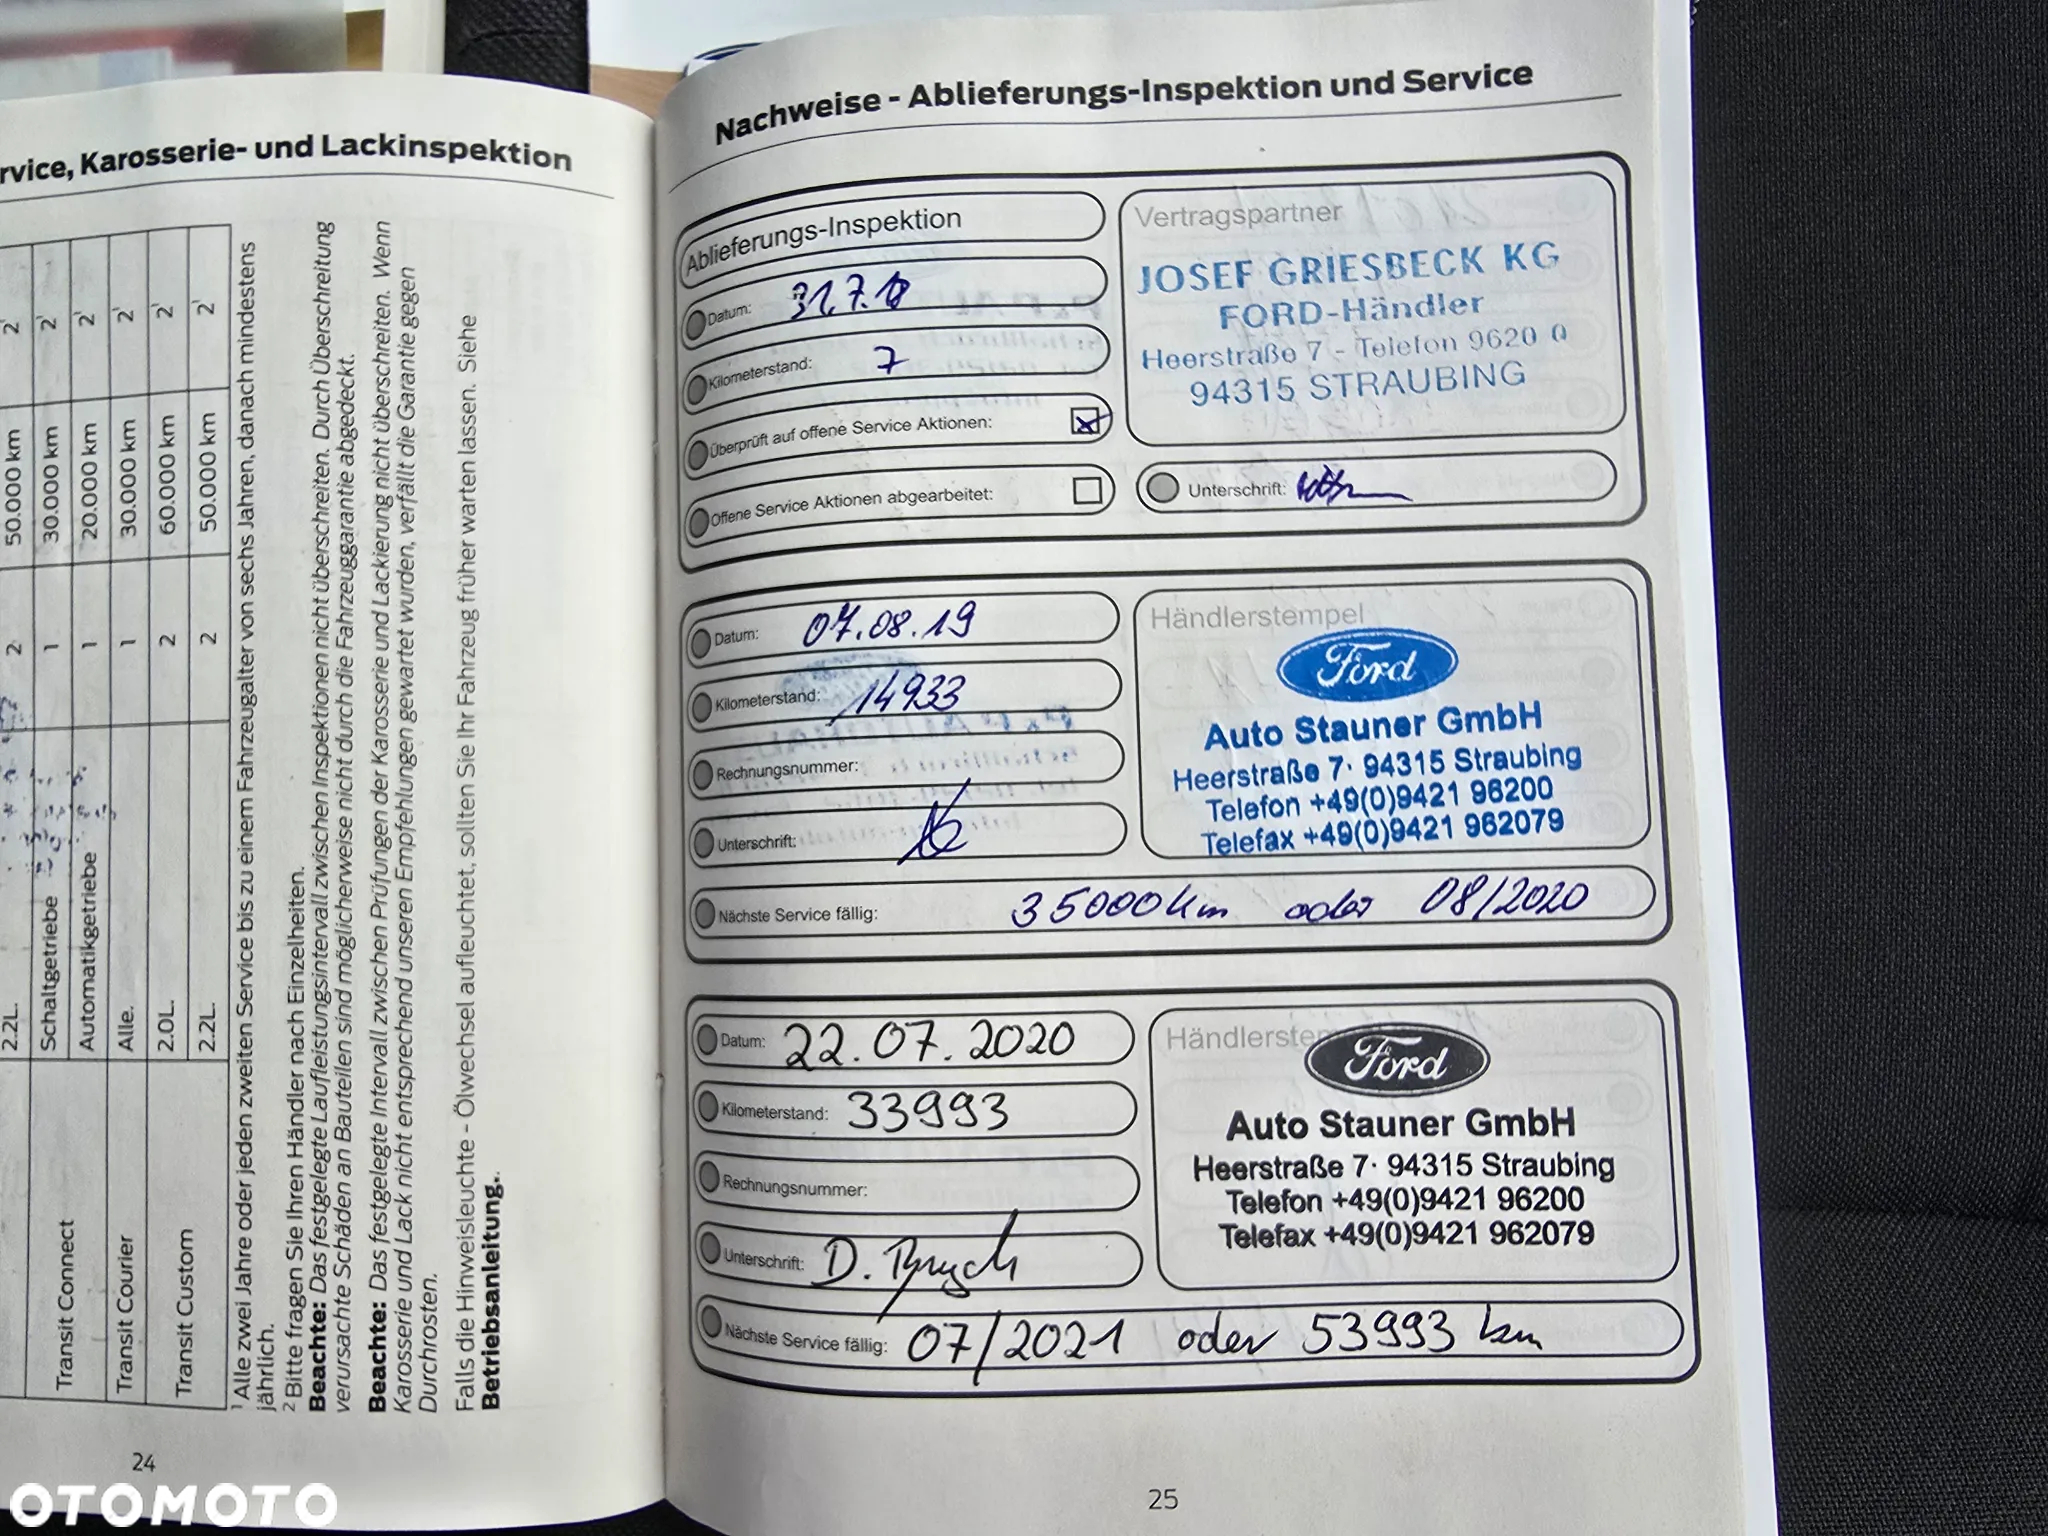 rvice, Karosserie- und Lackinspektion
2.2L. 2 50.000 km 2¹
Transit Connect Schaltgetriebe 1 30.000 km 2¹
Automatikgetriebe 1 20.000 km 2¹
Transit Courier Alle. 1 30.000 km 2¹
Transit Custom 2.0L. 2 60.000 km 2¹
2.2L. 2 50.000 km 2¹
¹ Alle zwei Jahre oder jeden zweiten Service bis zu einem Fahrzeugalter von sechs Jahren, danach mindestens
jährlich.
² Bitte fragen Sie Ihren Händler nach Einzelheiten.
Beachte: Das festgelegte Laufleistungsintervall zwischen Inspektionen nicht überschreiten. Durch Überschreitung
verursachte Schäden an Bauteilen sind möglicherweise nicht durch die Fahrzeuggarantie abgedeckt.
Beachte: Das festgelegte Intervall zwischen Prüfungen der Karosserie und Lackierung nicht überschreiten. Wenn
Karosserie und Lack nicht entsprechend unseren Empfehlungen gewartet wurden, verfällt die Garantie gegen
Durchrosten.
Falls die Hinweisleuchte - Ölwechsel aufleuchtet, sollten Sie Ihr Fahrzeug früher warten lassen. Siehe
Betriebsanleitung..
24
Nachweise - Ablieferungs-Inspektion und Service
Ablieferungs-Inspektion
Datum: 31.7.18
Kilometerstand: 7
Überprüft auf offene Service Aktionen:
Offene Service Aktionen abgearbeitet:
Vertragspartner
JOSEF GRIESBECK KG
FORD-Händler
Heerstraße 7 - Telefon 9620 0
94315 STRAUBING
Unterschrift:
Datum: 07.08.19
Kilometerstand: 14933
Rechnungsnummer:
Unterschrift:
Händlerstempel
Ford
Auto Stauner GmbH
Heerstraße 7 · 94315 Straubing
Telefon +49(0)9421 96200
Telefax +49(0)9421 962079
Nächste Service fällig: 35000 km oder 08/2020
Datum: 22.07.2020
Kilometerstand: 33993
Rechnungsnummer:
Unterschrift: D.
Händlerstem
Ford
Auto Stauner GmbH
Heerstraße 7 · 94315 Straubing
Telefon +49(0)9421 96200
Telefax +49(0)9421 962079
Nächste Service fällig: 07/2021 oder 53993 km
25
OTOMOTO